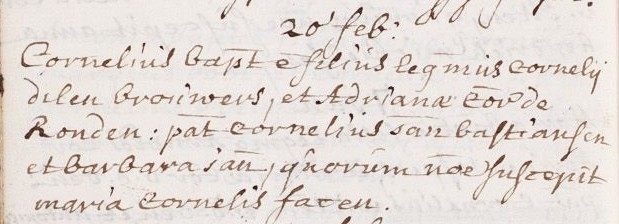 20 feb:
Cornelius bapt e filius legmus Cornelij
dilen brouwers, et Adrianæ Cor de
Ronden: pat Cornelius san bastiansen
et barbara ian, quorum noe suscepit
maria Cornelis facen.